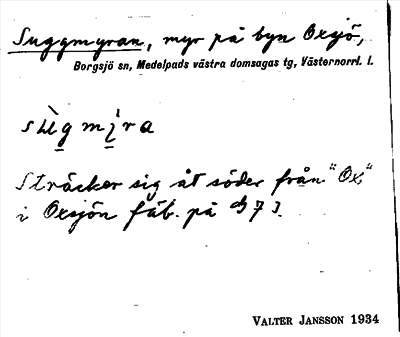 Suggmyran, myr på byn Oxsjö,
Borgsjö sn, Medelpads västra domsagas tg, Västernorrl. l.
sùg mị̀ra
Sträcker sig åt söder från "Ox"
i Oxsjön fäb. på 73.
VALTER JANSSON 1934